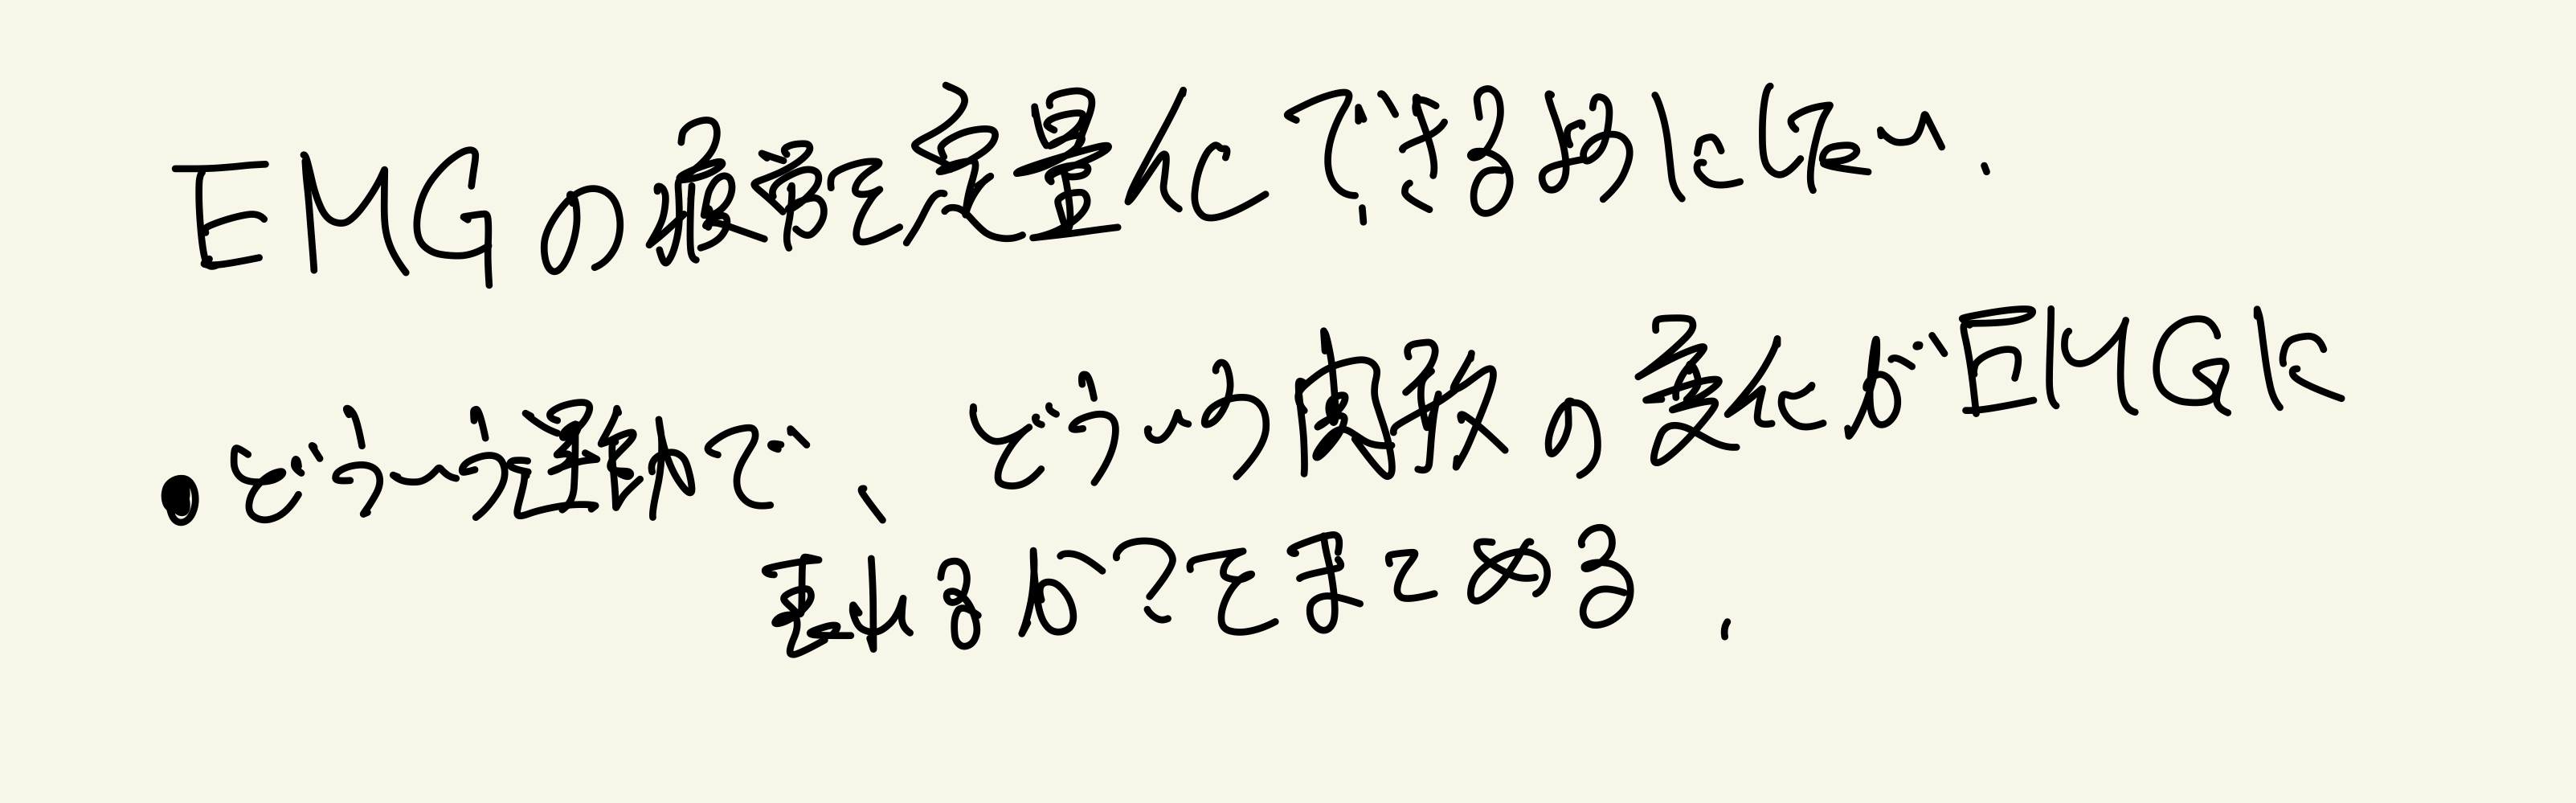 EMGの疲労を定量化できるようにしたい.
・どういう運動で、どういう周波数の変化がEMGに
表れるか?をまとめる.